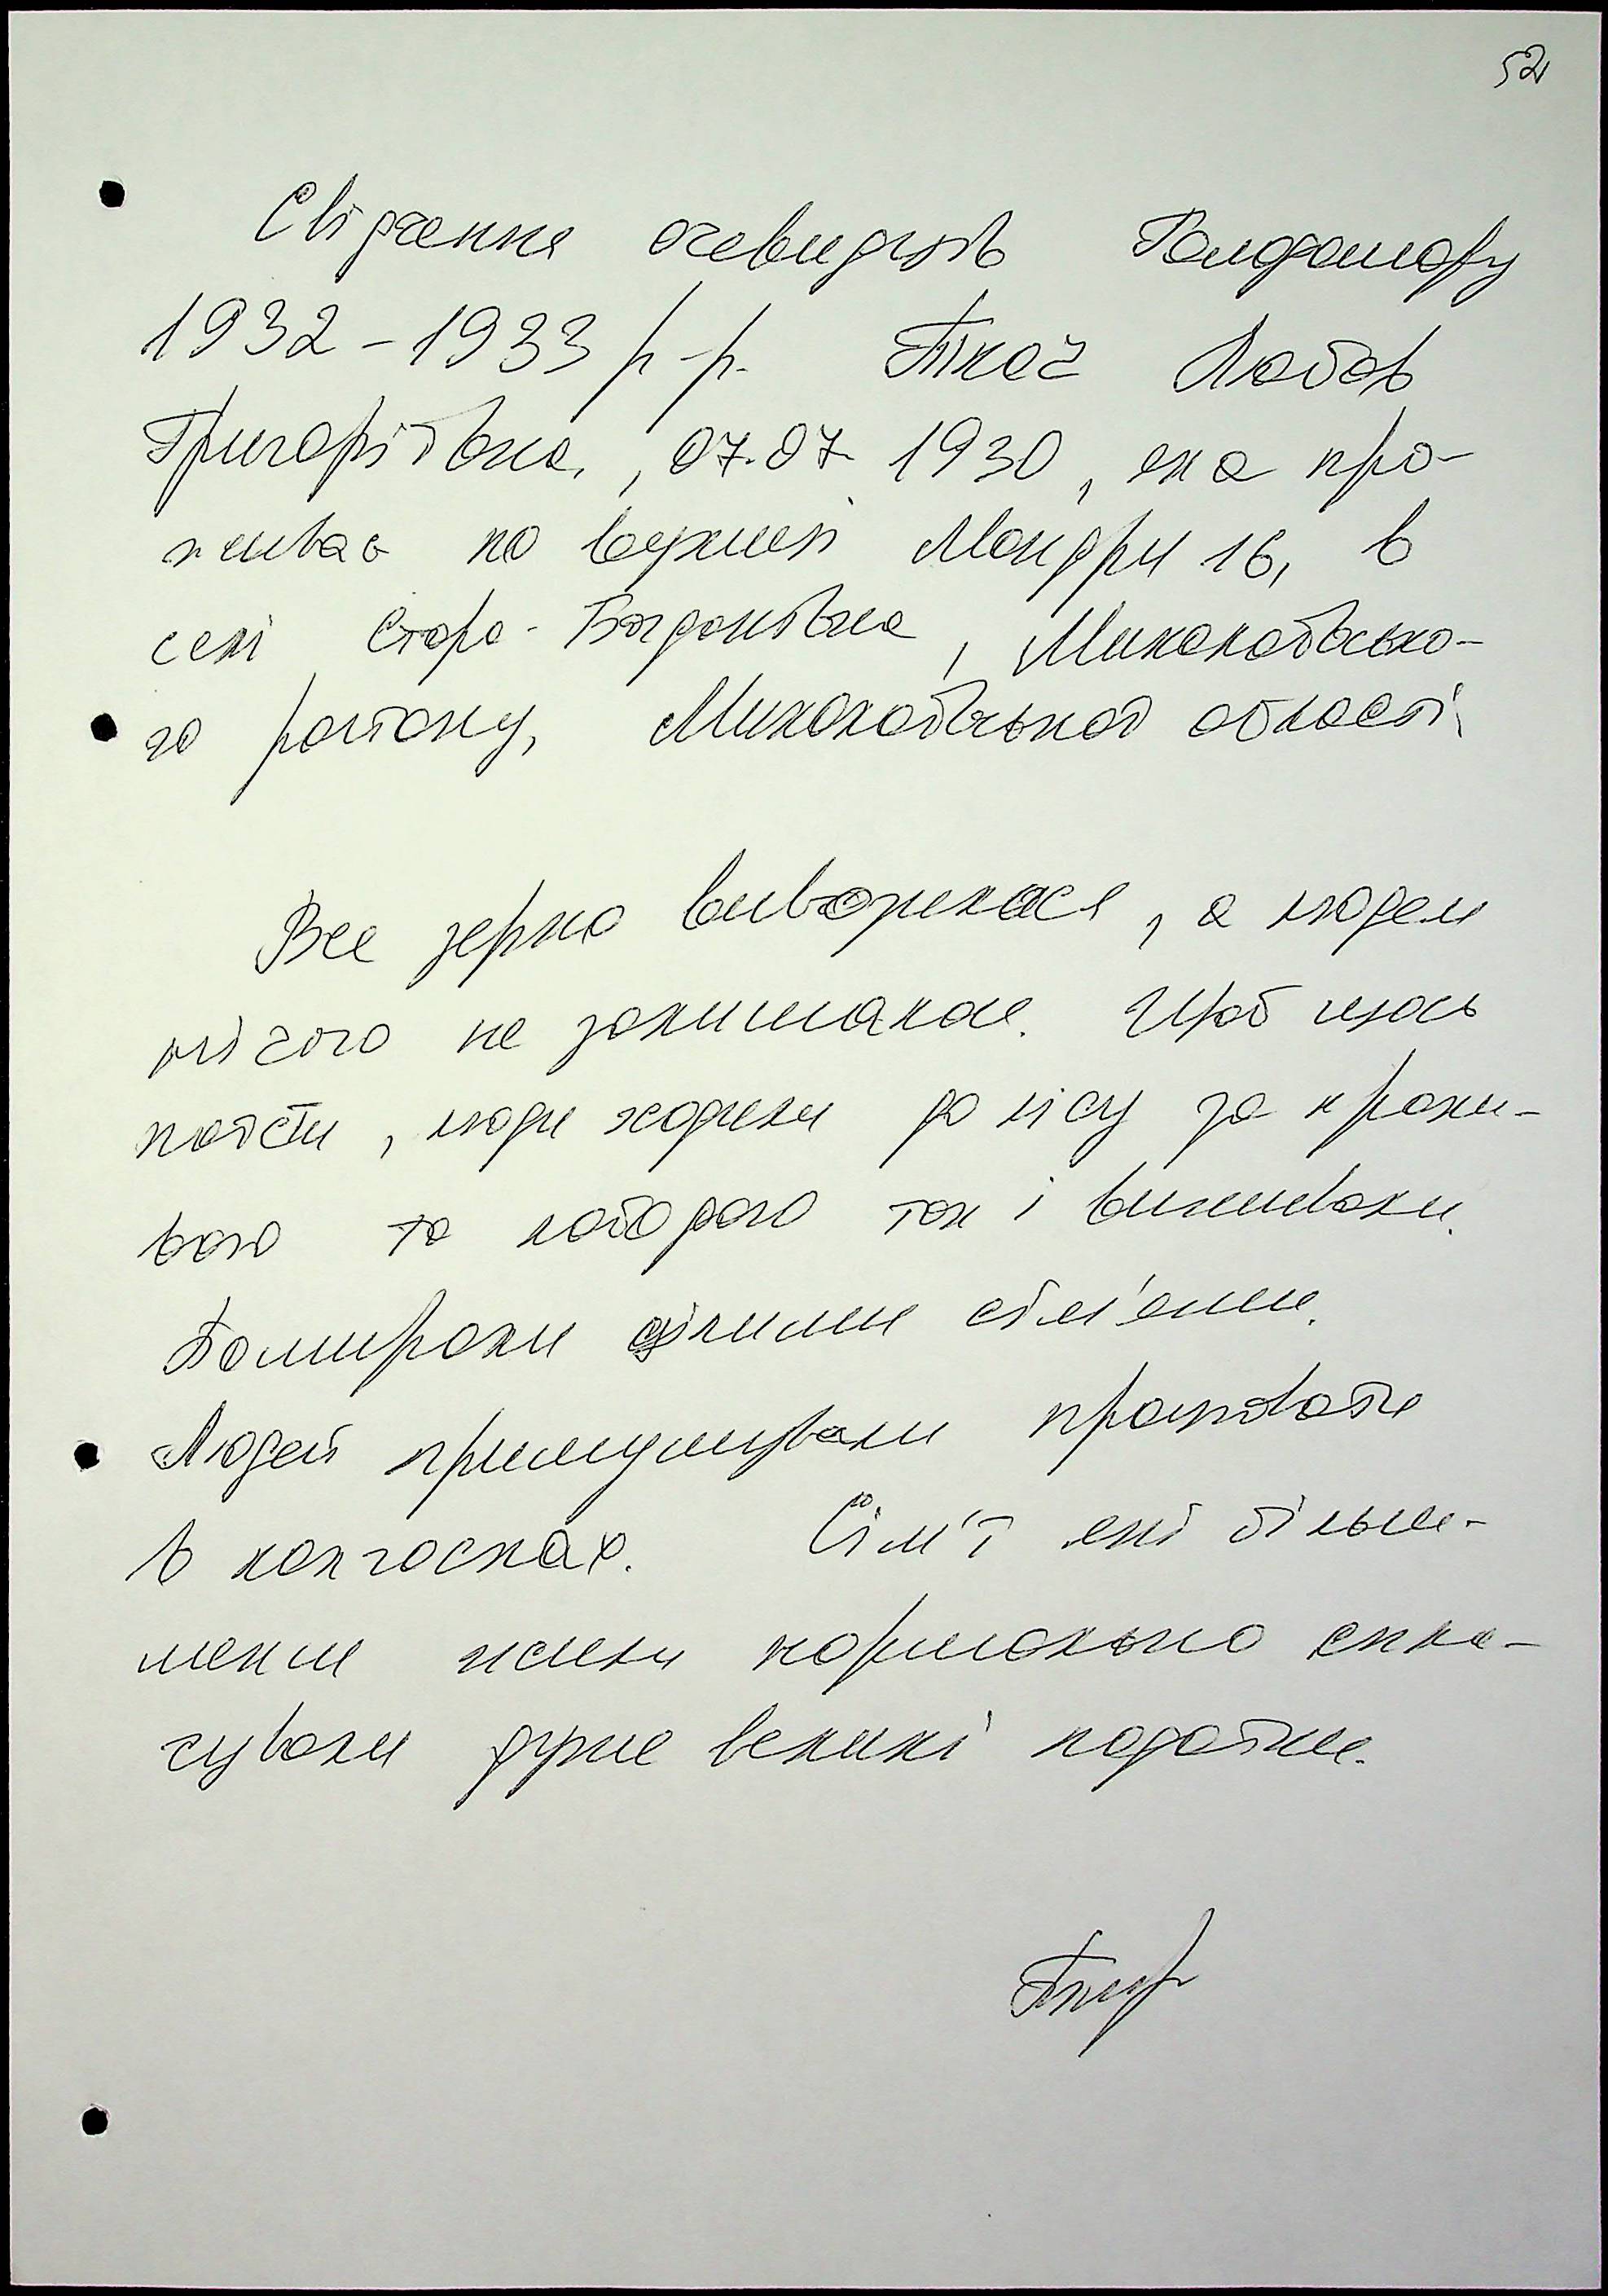 52
Свідчення очевидців Голодомору
1932-1933 р-р. Ткач Любов
Григорівна, 07.07.1930, яка про-
живає по вулиці Мандри 16, в
селі Старо-Богданівка, Миколаївсько-
го району, Миколаївської області
Все зерно вивозилося, а людям
нічого не залишалося. Щоб щось
поїсти, люди ходили до лісу за кропи-
вою та лободою так і виживали.
Помирали цілими сім'ями.
Людей примушували працювати
в колгоспах. Сім'ї які більш-
менш жили нормально спла-
чували дуже великі податки.